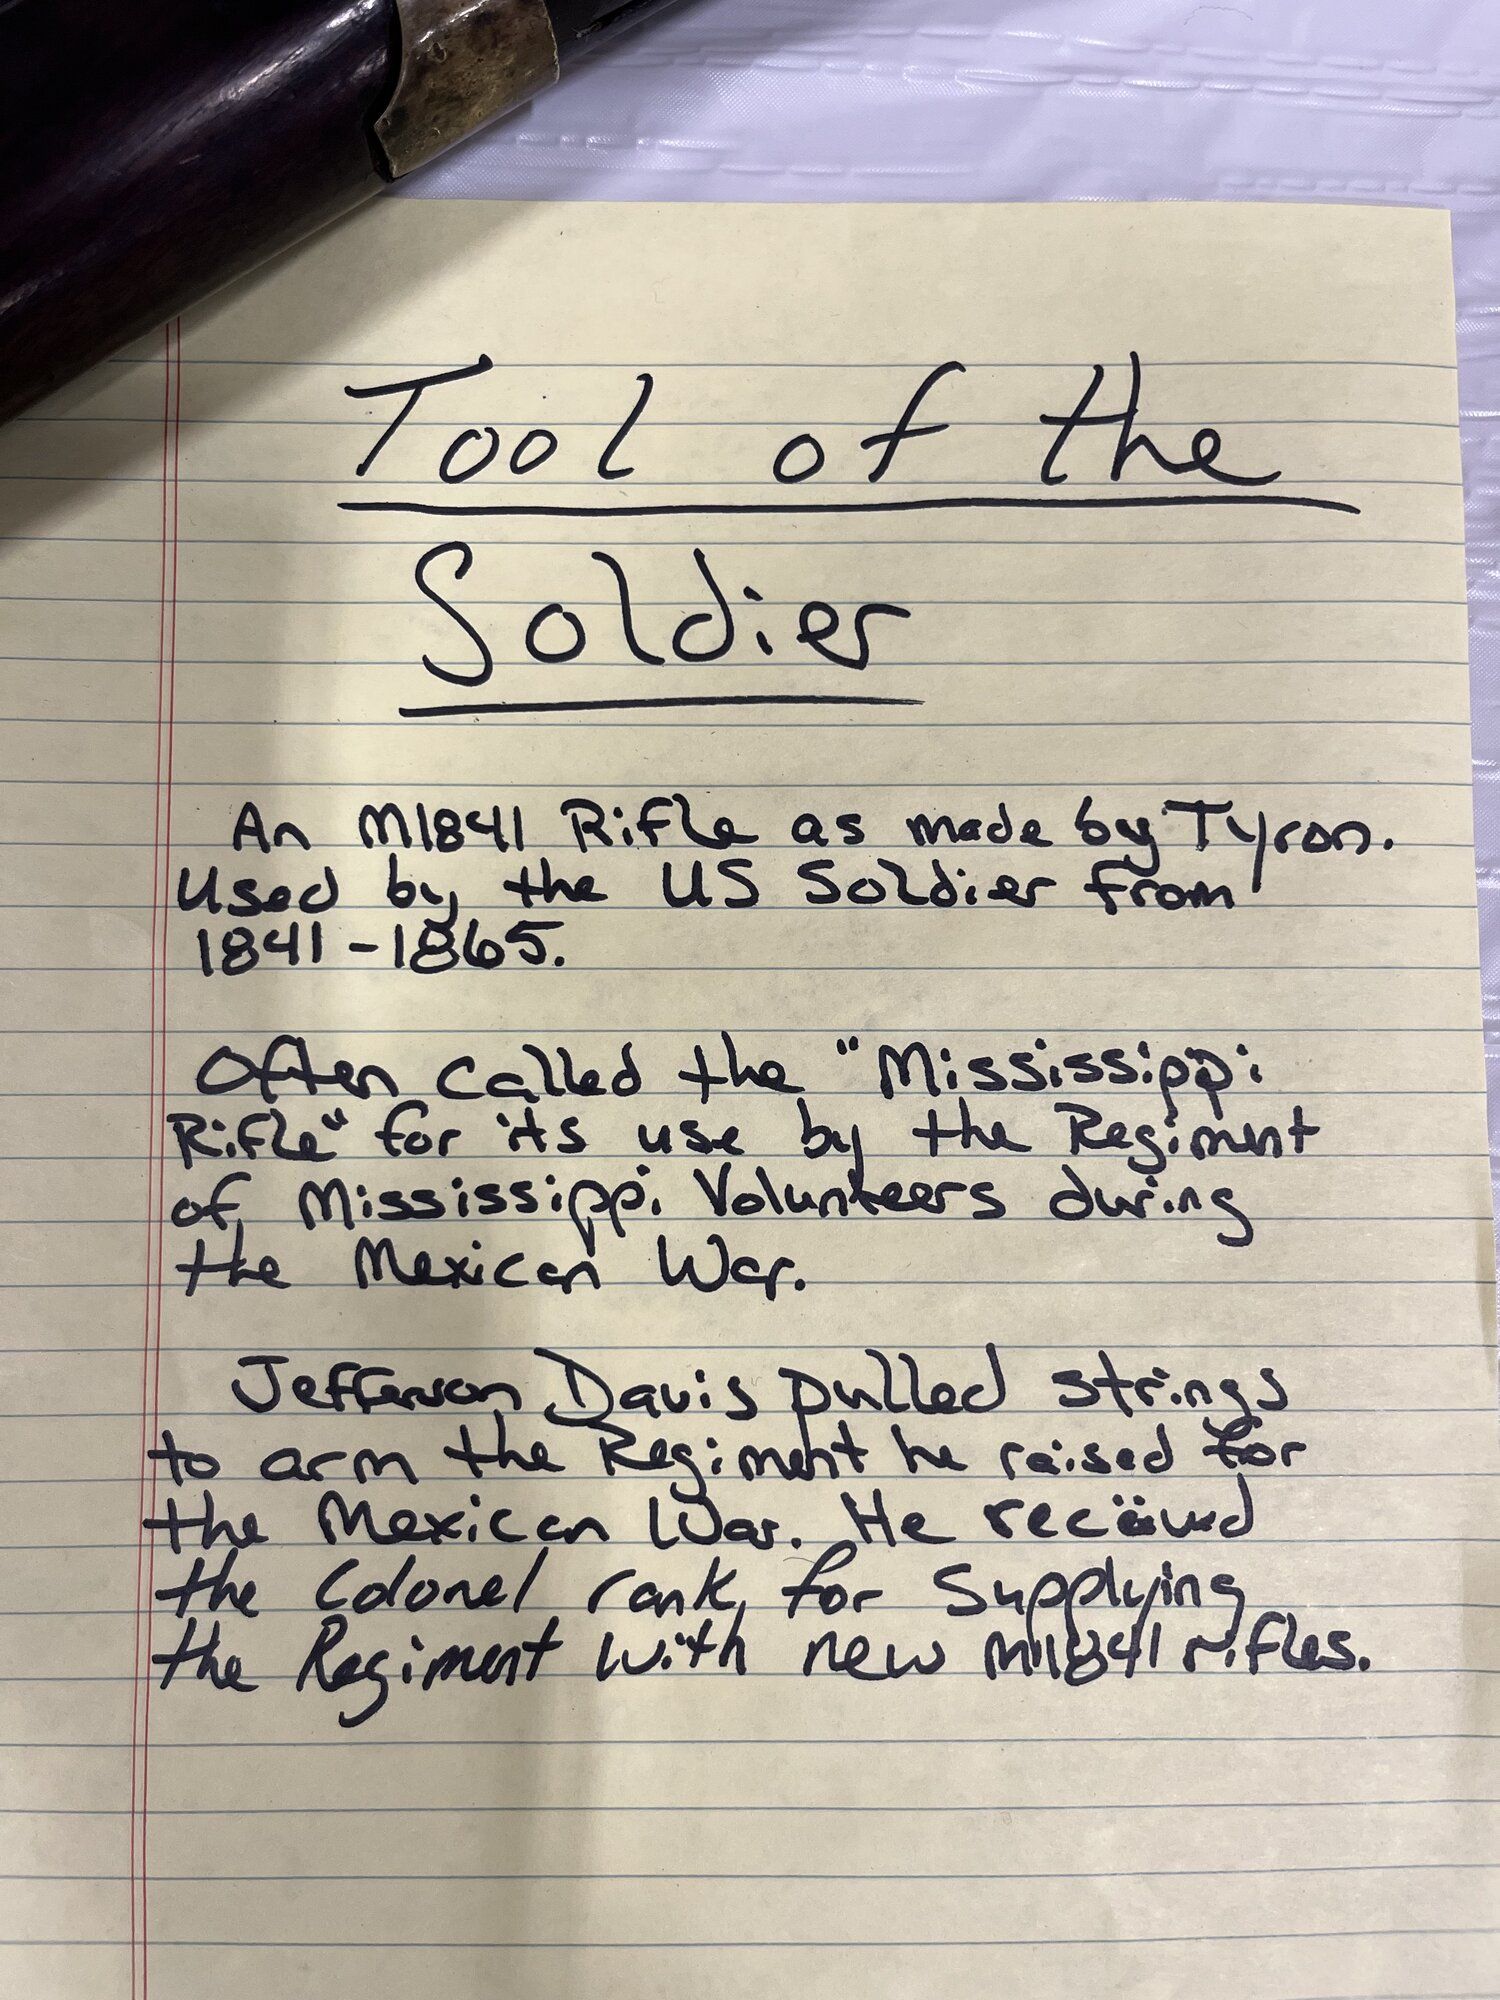 Tool of the
Soldier
An M1841 Rifle as made by Tyron.
Used by the US Soldier from
1841-1865.
Often called the "Mississippi
Rifle" for its use by the Regiment
of Mississippi Volunteers during
the Mexican War.
Jefferson Davis pulled strings
to arm the Regiment he raised for
the Mexican War. He received
the Colonel rank for supplying
the Regiment with new M1841 rifles.